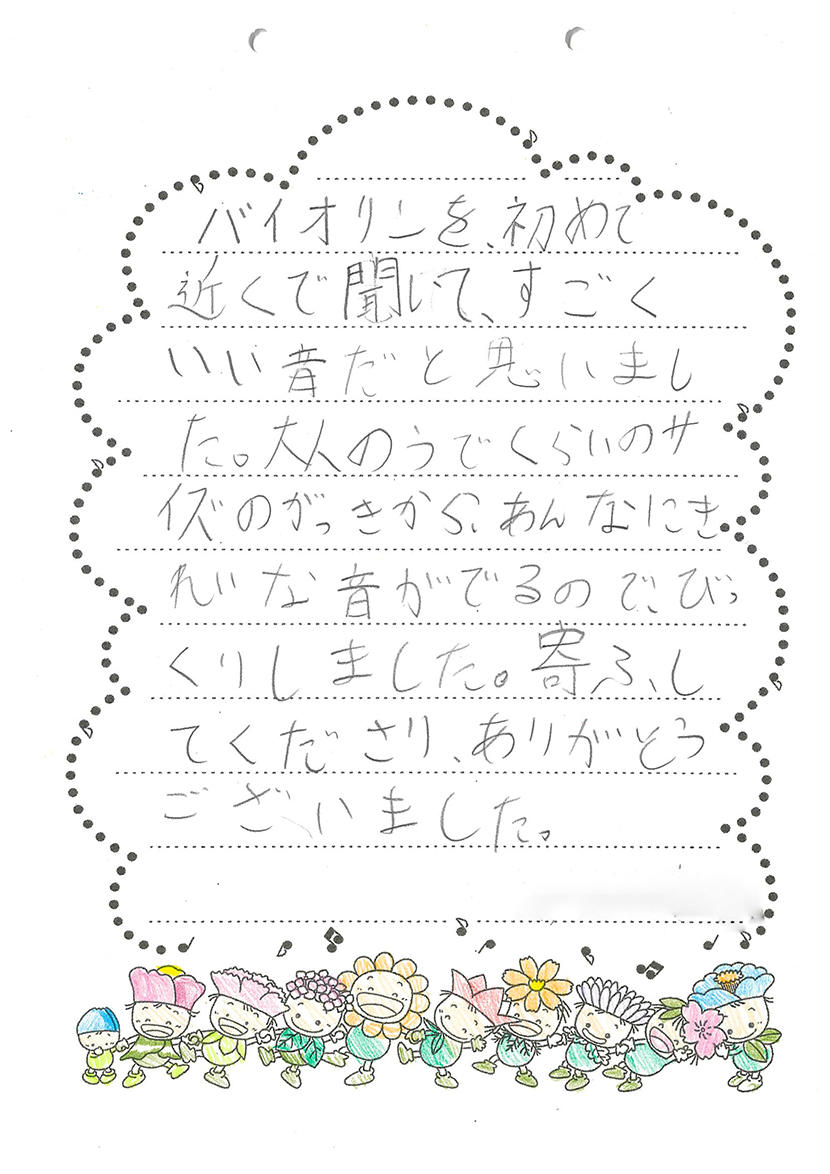 バイオリンを、初めて
近くで聞いて、すごく
いい音だと思いまし
た。大人のうでくらいのサ
イズのがっきから、あんなにき
れいな音がでるので、びっ
くりしました。寄ふ、し
てくださり、ありがとう
ございました。